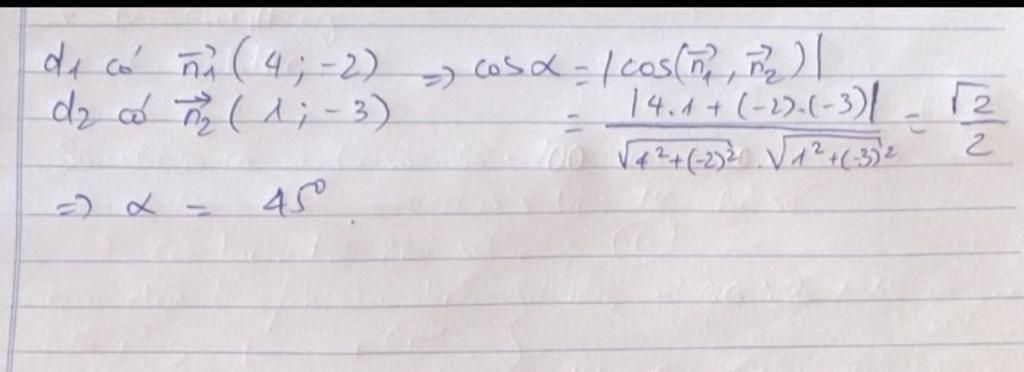 d₁ có n₁⃗ (4 ; -2) => cosα = |cos(n₁⃗, n₂⃗)|
d₂ có n₂⃗ (1 ; -3) = |4.1 + (-2).(-3)| / √4²+(-2)² . √1²+(-3)² = √2 / 2
=> α = 45°